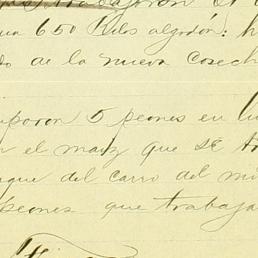 trabajaron el
650 Kilos algodón: h
do de la nueva cosech
paron 5 peones en l
el maiz que se tr
que del carro del mi
peones que trabaja